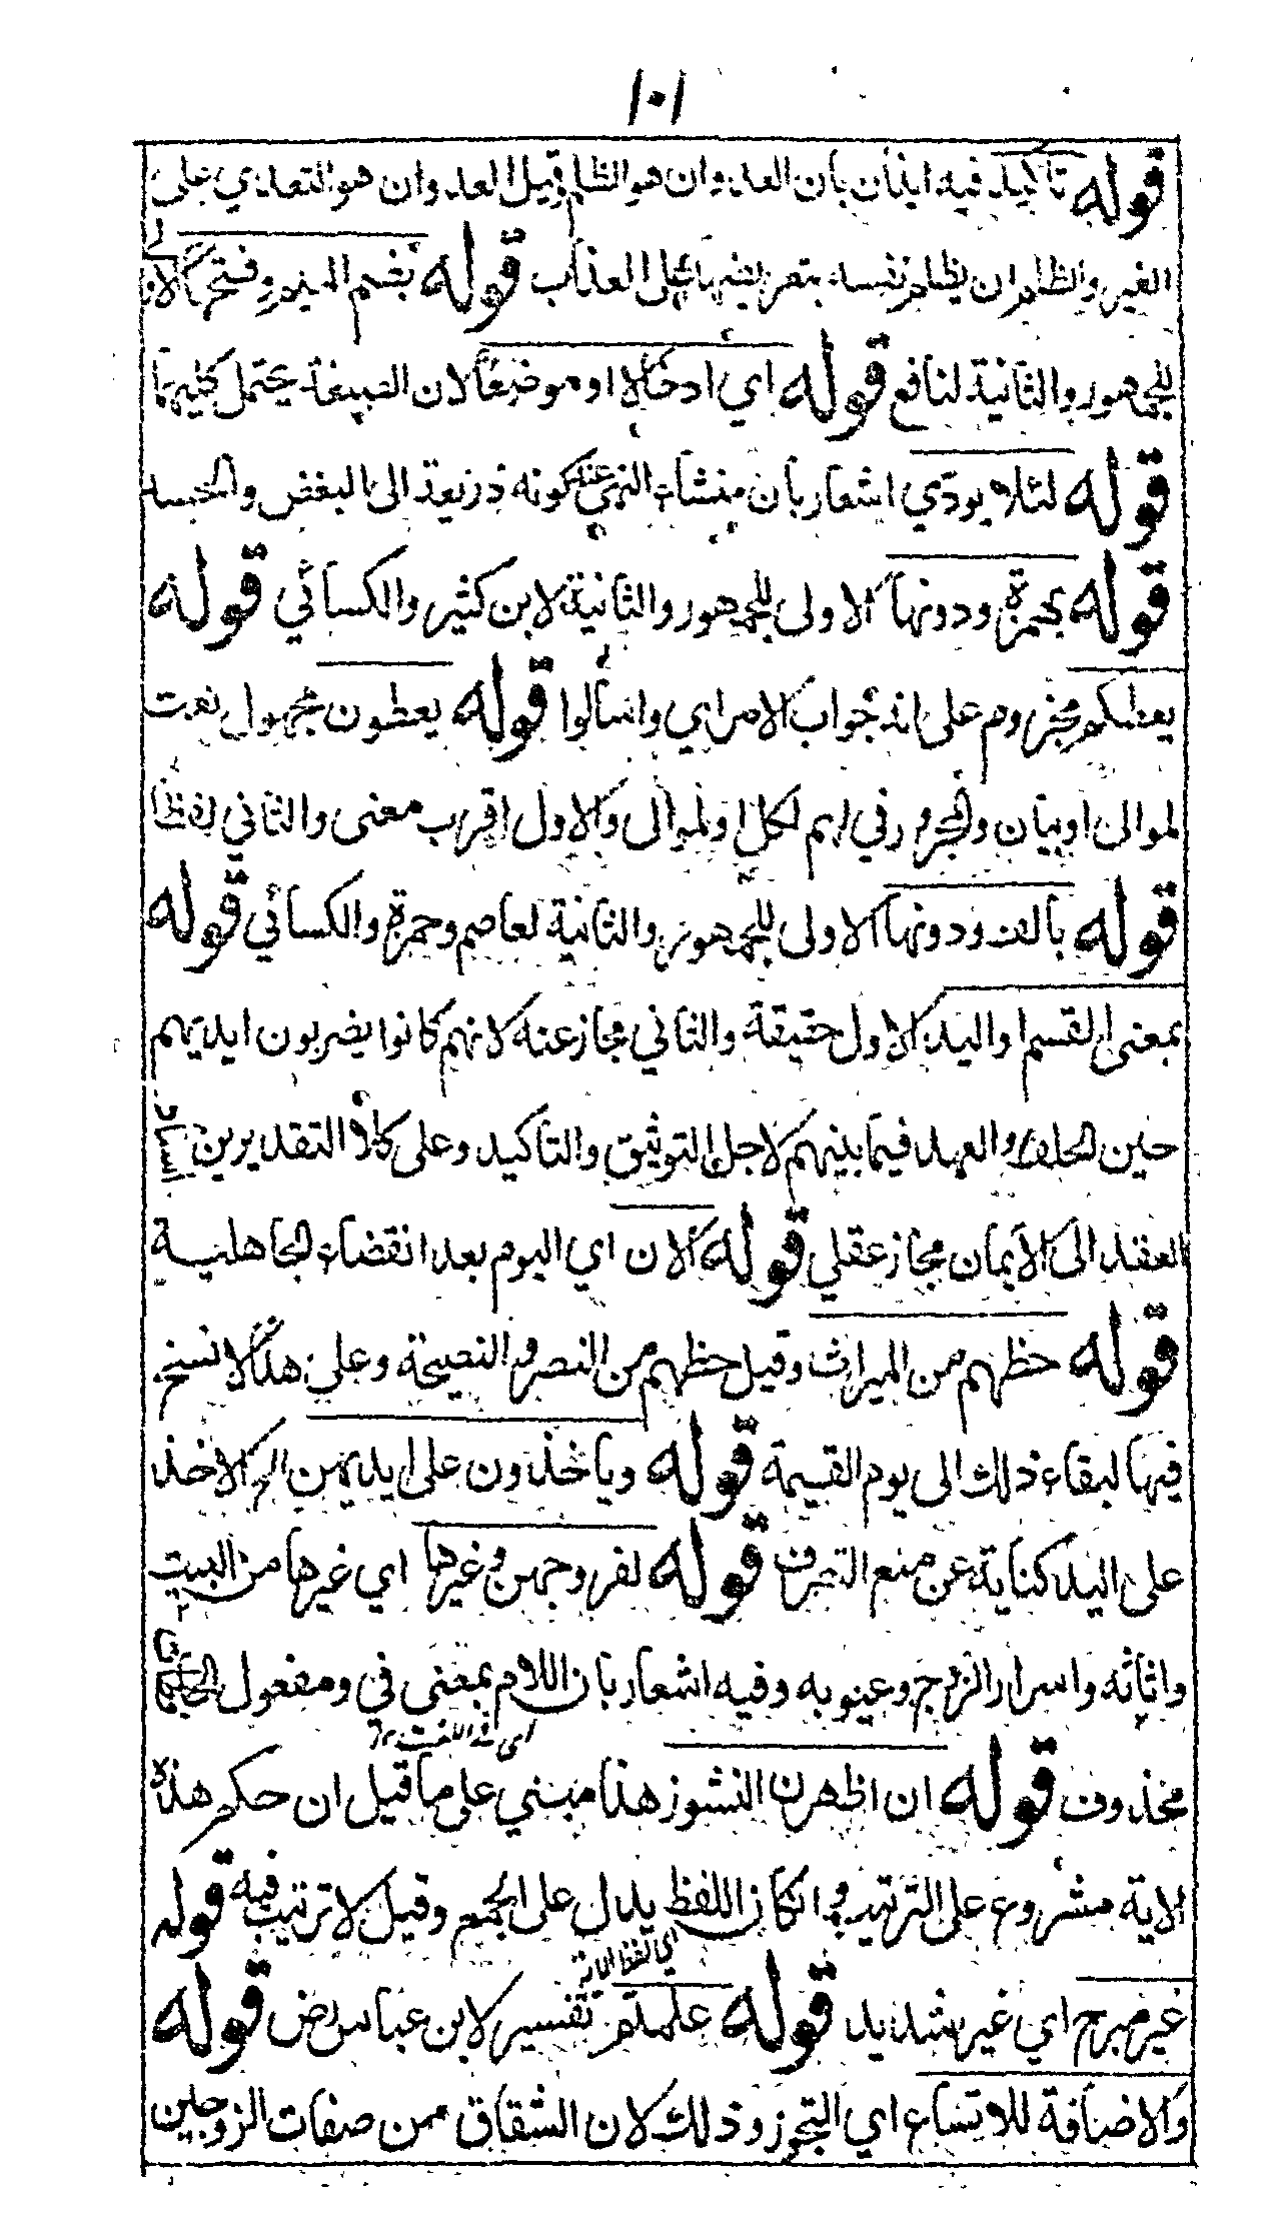 ١٠١
قوله تاكيد فيه ايذان بان العدوان هو الظلم وقيل العدوان هو التعدي على
الغير والظلم ان يظلم نفسه بتعريضها على العذاب قوله بضم الميم وفتحها الاولى
للجمهور والثانية لنافع قوله اي ادخالا او موضعا لان الصيغة يحتمل كليهما
قوله لئلا يودي اشعار بان منشاء النهي عنه كونه ذريعة الى البغض والحسد
قوله بحمزة ودونها الاولى للجمهور والثانية لابن كثير والكسائي قوله
يعطكم مجزوم على انه جواب الامر اي واسالوا قوله يعطون مجهول نعت
لموالى او بيان والمجرور في لهم لكل او لمال والاول اقرب معنى والثاني لفظا
قوله بالف ودونها الاولى للجمهور والثانية لعاصم وحمزة والكسائي قوله
بمعنى القسم او اليد الاول حقيقة والثاني مجاز عنه لانهم كانوا يضربون ايديهم
حين الحلف والعهد فيما بينهم لاجل التوثيق والتاكيد وعلى كلا التقديرين اسناد
العقد الى الايمان مجاز عقلي قوله الان اي اليوم بعد انقضاء الجاهلية
قوله حظهم من الميراث وقيل حظهم من النصر والنصيحة وعلى هذا لا نسخ
فيها لبقاء ذلك الى يوم القيمة قوله وياخذون على ايديهن الخ الاخذ
على اليد كناية عن منع التصرف قوله لفروجهن وغيرها اي غيرها من البيت
واثاثه واسرار الزوج وعيوبه وفيه اشعار بان اللام بمعنى في ومفعول
اي في اللغت ١٢
محذوف قوله ان اظهرن النشوز هذا مبني على ما قيل ان حكم هذه
الاية مشروع على الترتيب وان كان اللفظ يدل على الجمع وقيل لا ترتيب فيه قوله
اي لفظ الاية
غير مبرح اي غير شديد قوله علمتم تفسير لابن عباس رض قوله
والاضافة للاتساع اي التجوز وذلك لان الشقاق من صفات الزوجين